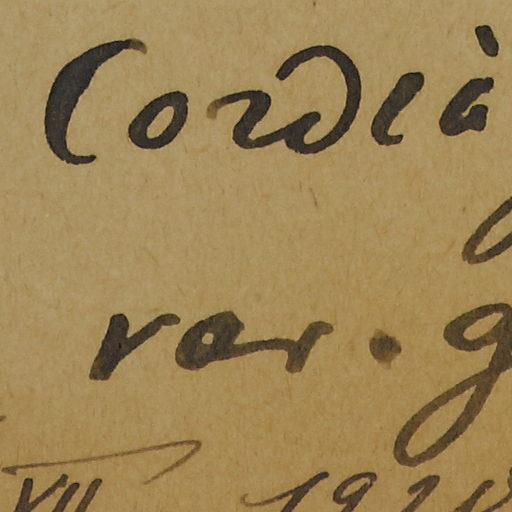 Cordia
var. g
VII 192